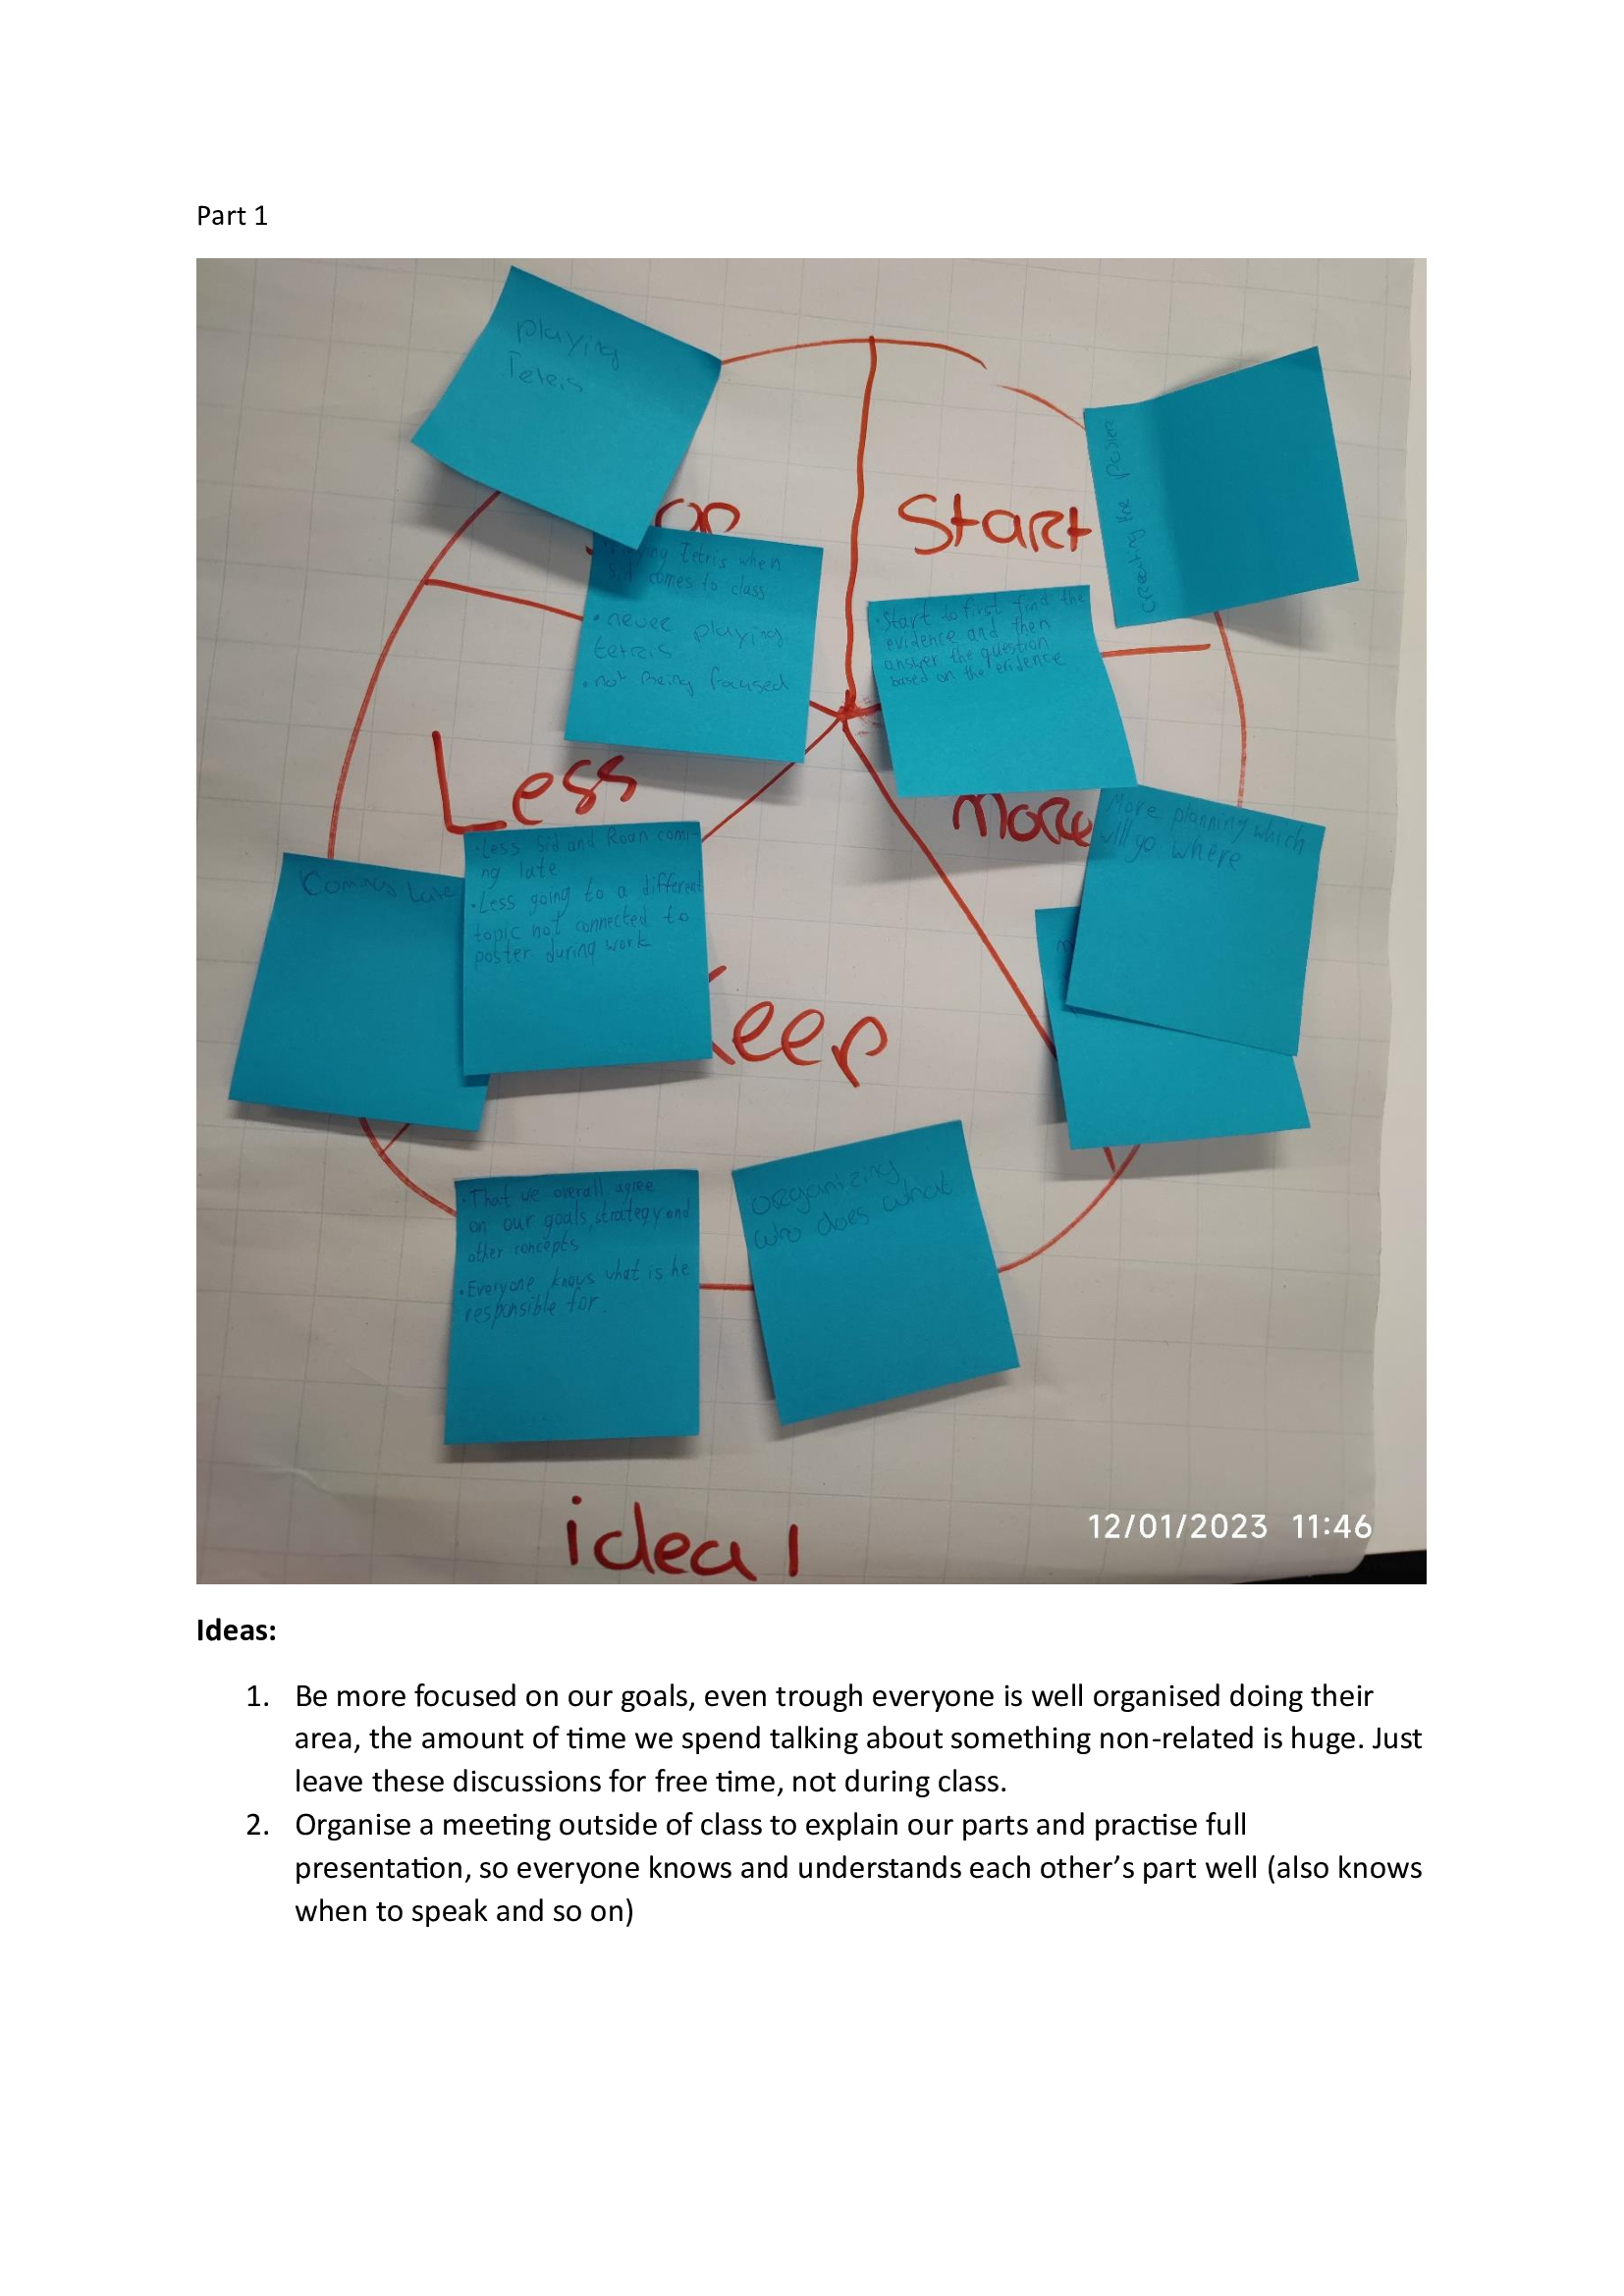 Part 1
playing
Tetris
op
Start
creating the poster
ying Tetris when
Sid comes to class
• never playing
tetris
• not Being focused
• Start to first find the
evidence and then
answer the question
based on the evidence
Less
More
More planning which
will go where
Coming Late
• Less Sid and Roan comi-
ng late
• Less going to a different
topic not connected to
poster during work
Keep
• That we overall agree
on our goals, strategy and
other concepts
• Everyone knows what is he
responsible for.
organizing
who does what
ideal
12/01/2023 11:46
Ideas:
1. Be more focused on our goals, even trough everyone is well organised doing their
area, the amount of time we spend talking about something non-related is huge. Just
leave these discussions for free time, not during class.
2. Organise a meeting outside of class to explain our parts and practise full
presentation, so everyone knows and understands each other's part well (also knows
when to speak and so on)